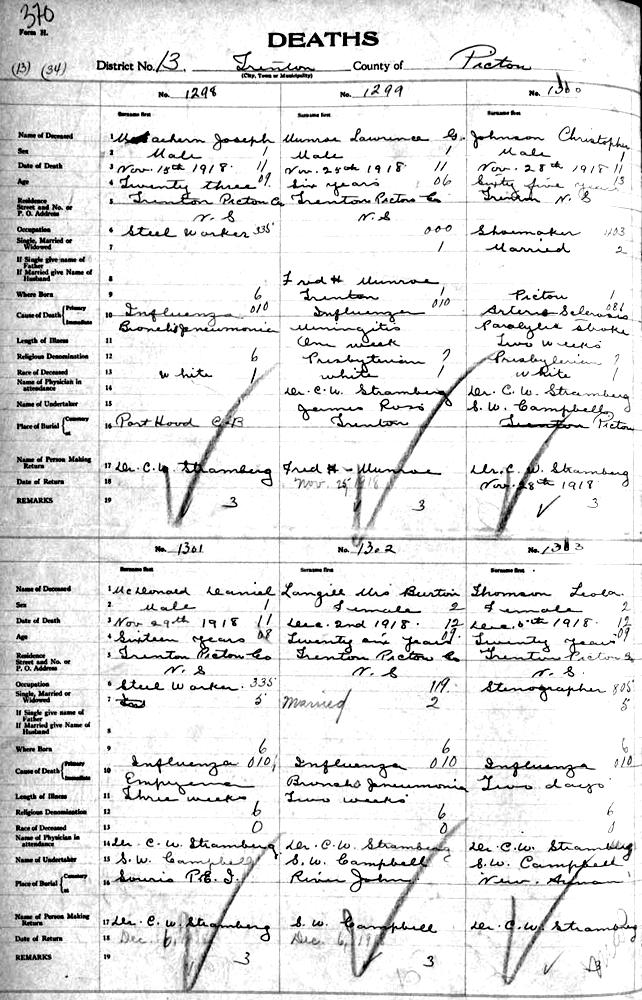 370
Form H.
DEATHS
(13) (34) District No. 13. Trenton County of Pictou
(City, Town or Municipality)
No. 1298 No. 1299 No. 1300
Surname first Surname first Surname first
Name of Deceased 1 Joseph Munroe Lawrence G. Johnson Christopher
Sex 2 Male 1 Male 1 Male 1
Date of Death 3 Nov. 15th 1918. 11 Nov. 25th 1918 11 Nov. 28th 1918 11
Age 4 Twenty three 09 Six years 06 Sixty five years 13
Residence Street and No. or P. O. Address 5 Trenton Pictou Co Trenton Pictou Co Trenton N. S
N. S N. S
Occupation 6 Steel Worker 335 000 Shoemaker 403
Single, Married or Widowed 7 1 Married 2
If Single give name of Father
If Married give Name of Husband 8 Fred H Munroe
Where Born 9 6 Trenton 1 Pictou 1
Cause of Death Primary 10 Influenza 010 Influenza 010 Arterio Sclerosis 081
Immediate Broncho pneumonia Meningitis Paralytic stroke
Length of Illness 11 One week Two weeks
Religious Denomination 12 6 Presbyterian ? Presbyterian ?
Race of Deceased 13 White 1 white 1 White 1
Name of Physician in attendance 14 Dr. C. W. Stramberg Dr. C. W. Stramberg
Name of Undertaker 15 James Ross S. W. Campbell
Place of Burial Cemetery at 16 Port Hood C. B Trenton Trenton Pictou
Name of Person Making Return 17 Dr. C. W. Stramberg Fred H. Munroe Dr. C. W. Stramberg
Date of Return 18 Nov. 25 1918 Nov. 28th 1918
REMARKS 19 3 3 3
No. 1301 No. 1302 No. 1303
Surname first Surname first Surname first
Name of Deceased 1 McDonald Daniel Langill Mrs Burton Thomson Leola
Sex 2 Male 1 Female 2 Female 2
Date of Death 3 Nov 29th 1918 11 Dec. 2nd 1918. 12 Dec. 1918. 12
Age 4 Sixteen years 08 Twenty six years 09 Twenty years 09
Residence Street and No. or P. O. Address 5 Trenton Pictou Co Trenton Pictou Co Trenton Pictou Co
N. S N. S N. S.
Occupation 6 Steel Worker 335 119. Stenographer 805
Single, Married or Widowed 7 5 Married 2 5
If Single give name of Father
If Married give Name of Husband 8
Where Born 9 6 6 6
Cause of Death Primary 10 Influenza 010 Influenza 010 Influenza 010
Immediate Empyema Broncho pneumonia Two days
Length of Illness 11 Three weeks Two weeks
Religious Denomination 12 6 6 6
Race of Deceased 13 0 0 0
Name of Physician in attendance 14 Dr. C. W. Stramberg Dr. C. W. Stramberg Dr. C. W. Stramberg
Name of Undertaker 15 S. W. Campbell S. W. Campbell S. W. Campbell
Place of Burial Cemetery at 16 Souris P. E. I. River John New Annan
Name of Person Making Return 17 Dr. C. W. Stramberg S. W. Campbell Dr. C. W. Stramberg
Date of Return 18 Dec 6, Dec 6, 191
REMARKS 19 3 3 3